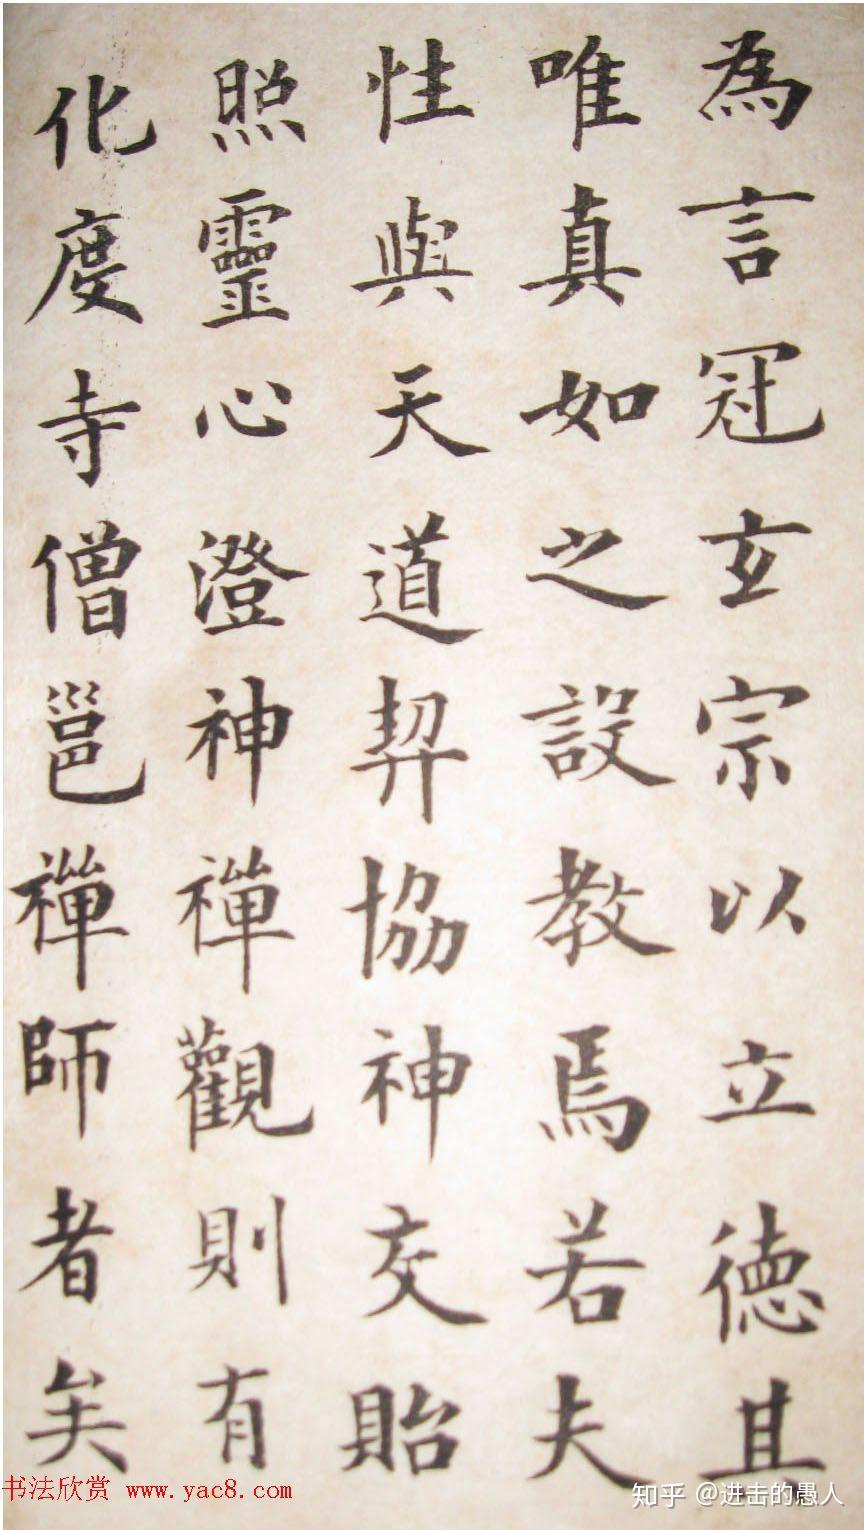 為言冠玄宗以立德其
唯真如之設教焉若夫
性與天道契協神交貽
照靈心澄神禪觀則有
化度寺僧邕禪師者矣
书法欣赏 www.yac8.com
知乎 @进击的愚人